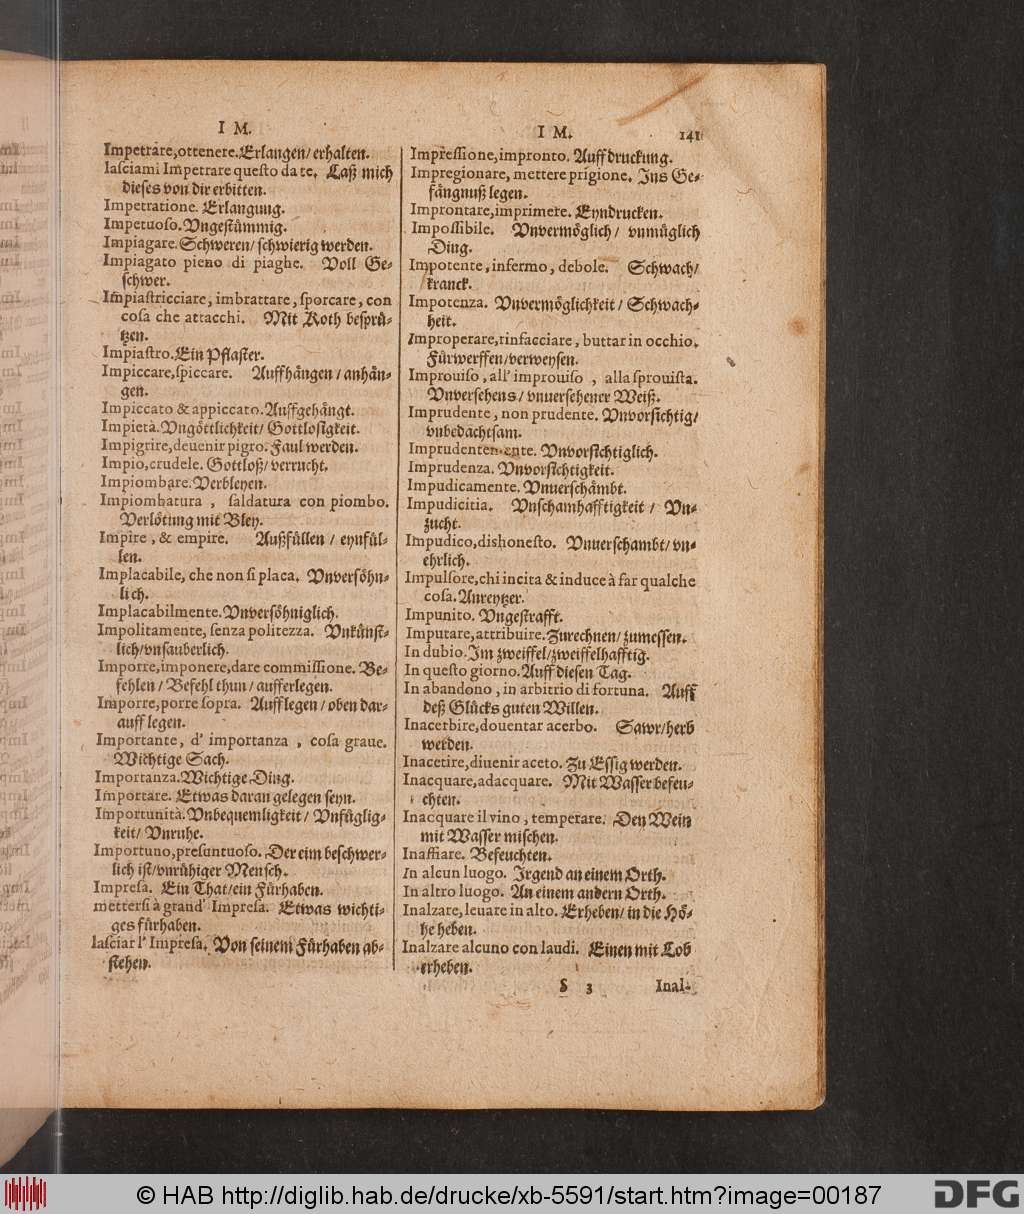 I M.
Impetrare, ottenere. Erlangen/ erhalten.
lasciami Impetrare questo da te. Laß mich
dieses von dir erbitten.
Impetratione. Erlangung.
Impetuoso. Vngestümmig.
Impiagare. Schweren/ schwierig werden.
Impiagato pieno di piaghe. Voll Ge-
schwer.
Impiastricciare, imbrattare, sporcare, con
cosa che attacchi. Mit Koth besprü-
tzen.
Impiastro. Ein Pflaster.
Impiccare, spiccare. Auffhängen / anhän-
gen.
Impiccato & appiccato. Auffgehängt.
Impietà. Vngöttlichkeit/ Gottlosigkeit.
Impigrire, deuenir pigro. Faul werden.
Impio, crudele. Gottloß/ verrucht.
Impiombare. Verbleyen.
Impiombatura , saldatura con piombo.
Verlötung mit Bley.
Impire , & empire. Außfüllen / eynfül-
len.
Implacabile, che non si placa. Vnversöhn-
lich.
Implacabilmente. Vnversöhniglich.
Impolitamente, senza politezza. Vnkünst-
lich/ vnsauberlich.
Imporre, imponere, dare commissione. Be-
fehlen / Befehl thun / aufferlegen.
Imporre, porre sopra. Auff legen / oben dar-
auff legen.
Importante, d' importanza , cosa graue.
Wichtige Sach.
Importanza. Wichtige Ding.
Importare. Etwas daran gelegen seyn.
Importunità. Vnbequemligkeit/ Vnfüglig-
keit/ Vnruhe.
Importuno, presuntuoso. Der eim beschwer-
lich ist/ vnrühiger Mensch.
Impresa. Ein That/ ein Fürhaben.
mettersi à grand' Impresa. Etwas wichti-
ges fürhaben.
lasciar l' Impresa. Von seinem Fürhaben ab-
stehen.
I M. 141
Impressione, impronto. Auffdruckung.
Impregionare, mettere prigione. Ins Ge-
fängnuß legen.
Improntare, imprimere. Eyndrucken.
Impossibile. Vnvermöglich / vnmüglich
Ding.
Impotente , infermo , debole. Schwach/
kranck.
Impotenza. Vnvermöglichkeit / Schwach-
heit.
Improperare, rinfacciare , buttar in occhio.
Fürwerffen/ verweysen.
Improuiso , all' improuiso , alla sprouista.
Vnversehens / vnuersehener Weiß.
Imprudente , non prudente. Vnvorsichtig/
vnbedachtsam.
Imprudentemente. Vnvorsichtiglich.
Imprudenza. Vnvorsichtigkeit.
Impudicamente. Vnuerschämbt.
Impudicitia. Vnschamhafftigkeit / Vn-
zucht.
Impudico, dishonesto. Vnuerschambt/ vn-
ehrlich.
Impulsore, chi incita & induce à far qualche
cosa. Anreytzer.
Impunito. Vngestrafft.
Imputare, attribuire. Zurechnen/ zumessen.
In dubio. Im zweiffel/ zweiffelhafftig.
In questo giorno. Auff diesen Tag.
In abandono , in arbitrio di fortuna. Auff
deß Glücks guten Willen.
Inacerbire, douentar acerbo. Sawr/ herb
werden.
Inacetire, diuenir aceto. Zu Essig werden.
Inacquare, adacquare. Mit Wasser befeu-
chten.
Inacquare il vino , temperare. Den Wein
mit Wasser mischen.
Inaffiare. Befeuchten.
In alcun luogo. Irgend an einem Orth.
In altro luogo. An einem andern Orth.
Inalzare, leuare in alto. Erheben/ in die Hö-
he heben.
Inalzare alcuno con laudi. Einen mit Lob
erheben.
S 3 Inal-
© HAB http://diglib.hab.de/drucke/xb-5591/start.htm?image=00187
DFG